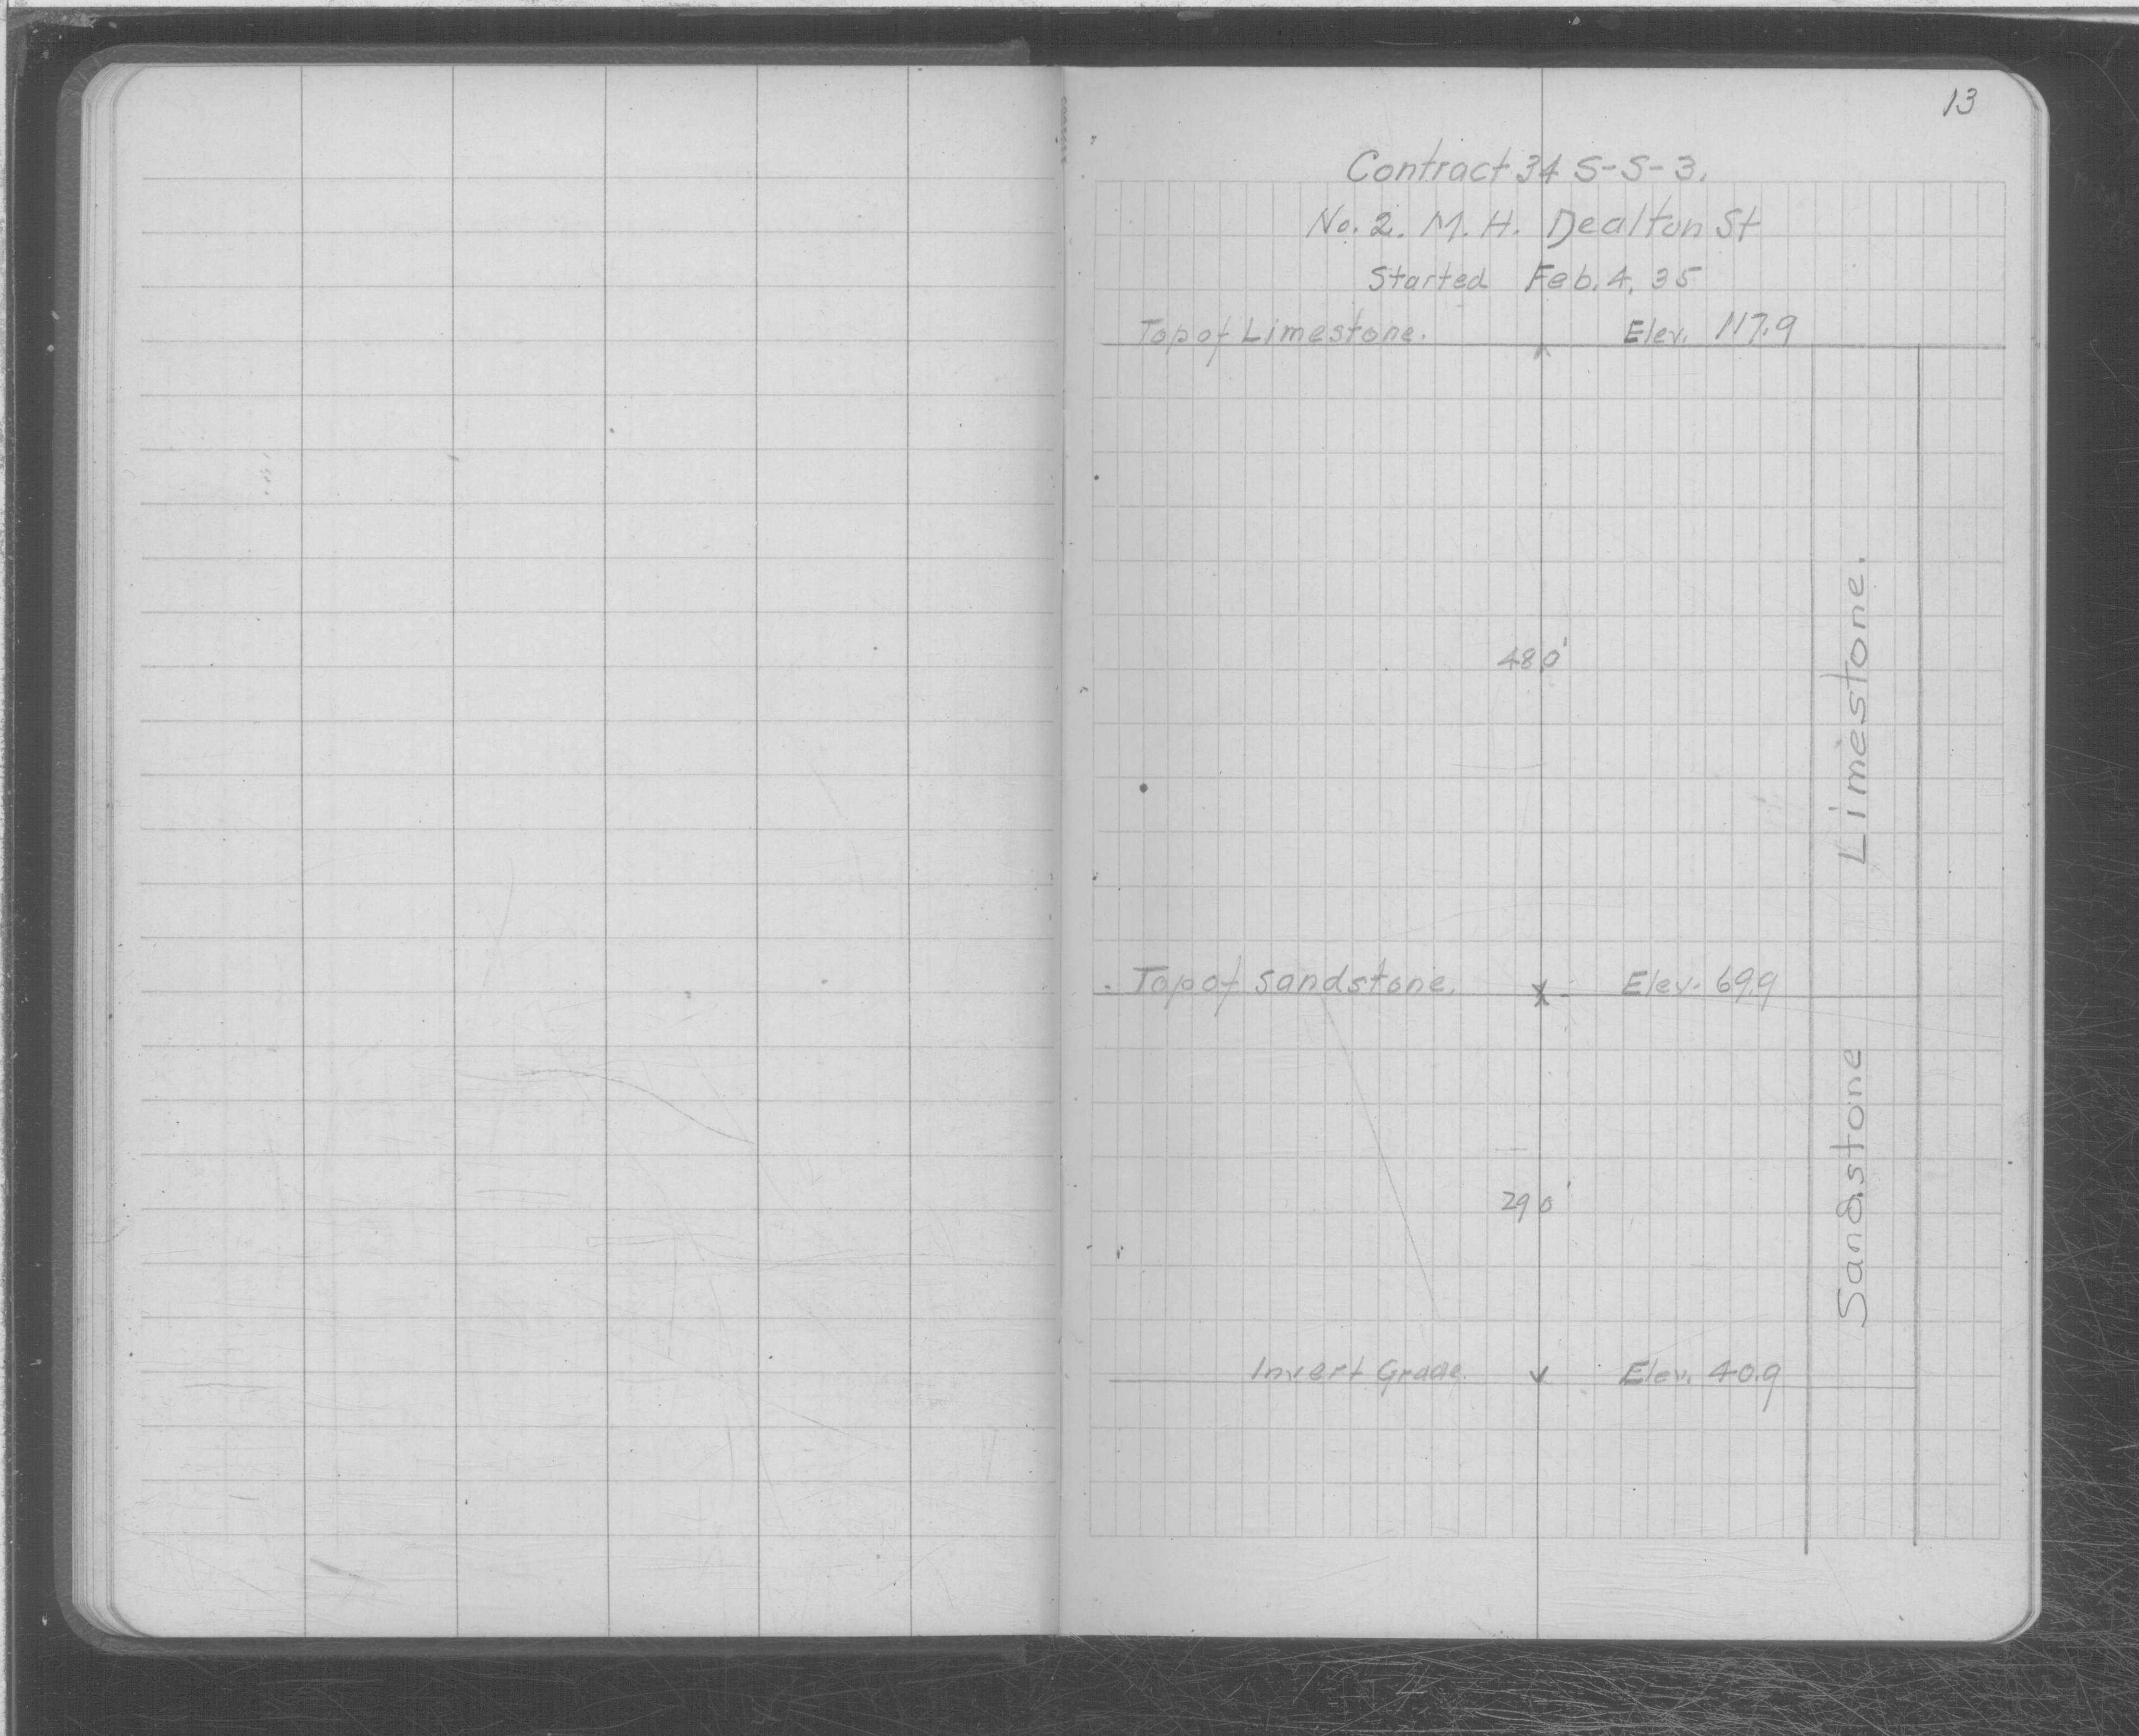 13
Contract 34 S-S-3.
No. 2. M. H. Dealton St
Started Feb. 4, 35
Top of Limestone. Elev. 117.9
48.0'
Limestone.
Top of Sandstone. Elev. 69.9
29.0'
Sandstone
Invert Grade. Elev. 40.9